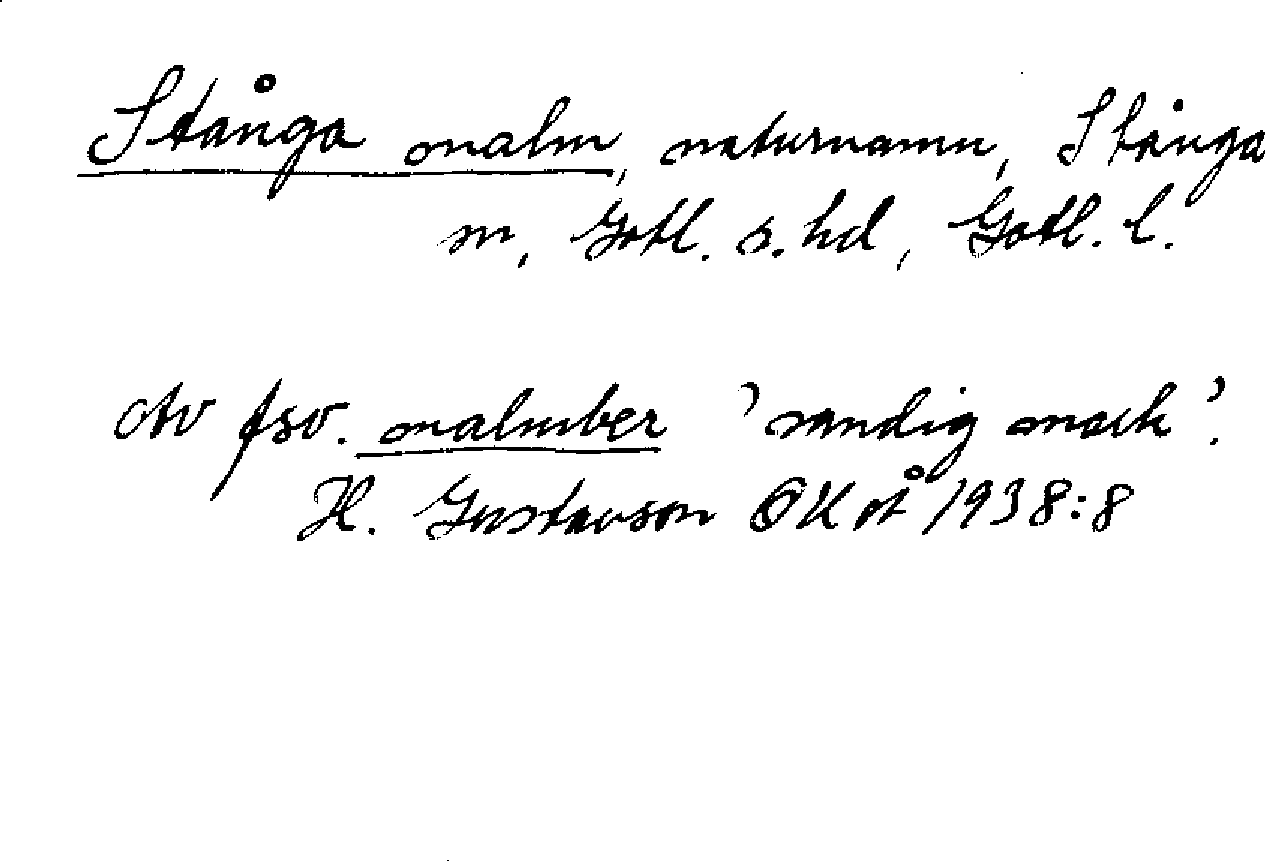 Stånga malm, naturnamn, Stånga
sn, Gotl. s. hd, Gotl. l.
Av fsv. malmber 'sandig mark'.
H. Gustavson 1938:8